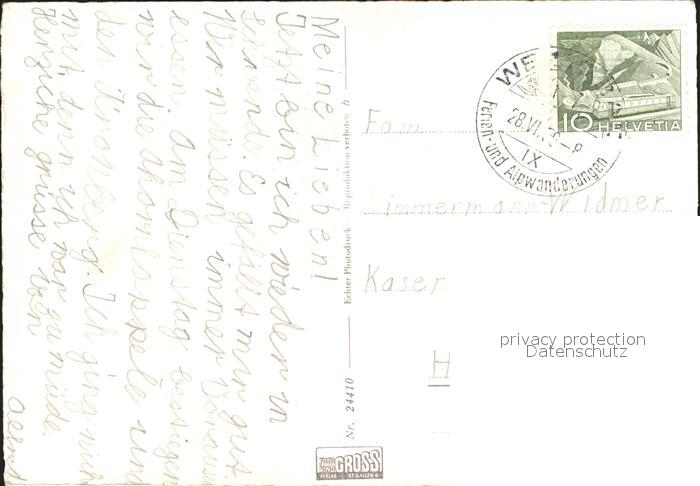 Meine Lieben!
Jetzt bin ich wieder in
Es gefällt mir gut
Wir müssen immer Voraus
essen. Am Dienstag bestigen
wir die Ahornkappele und
den Kronberg. Ich ging nich
mit, denn ich war zu müde.
Herzliche grüsse von
Nr. 24410 Echter Photodruck Reproduktion verboten
FOTO GROSS
VERLAG ST GALLEN
HELVETIA
10
28.VI.
IX
Ferien- und Alpwanderungen
Fam
Zimmermann-Widmer
Kaser
H
privacy protection
Datenschutz